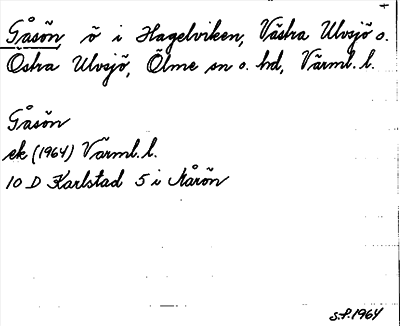 Gåsön, ö i Hagelviken, Västra Ulvsjö o.
Östra Ulvsjö, Ölme sn o. hd, Värml. l.
Gåsön
ek (1964) Värml. l.
10 D Karlstad 5 i Åårön
S.F. 1964